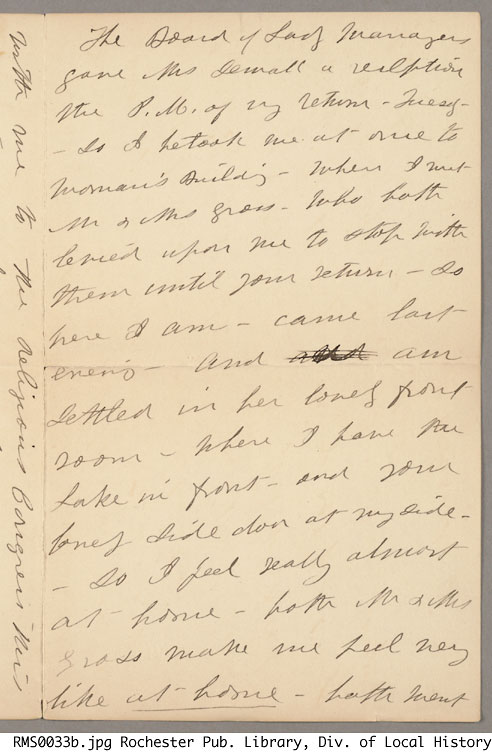 The Board of Lady Managers
gave Mrs Sewall a reception
the P.M. of my return - Tuesy-
- So I betook me at once to
Woman's Building - where I met
Mr & Mrs Gross - who both
levied upon me to stop with
them until your return - So
here I am - came last
evening - and am
settled in her lovely front
room - where I have the
Lake in front - and your
lovely side door at my side -
- So I feel really almost
at home - both Mr & Mrs
Gross make me feel very
like at home - both went
with me to the Religious Congress this
RMS0033b.jpg Rochester Pub. Library, Div. of Local History